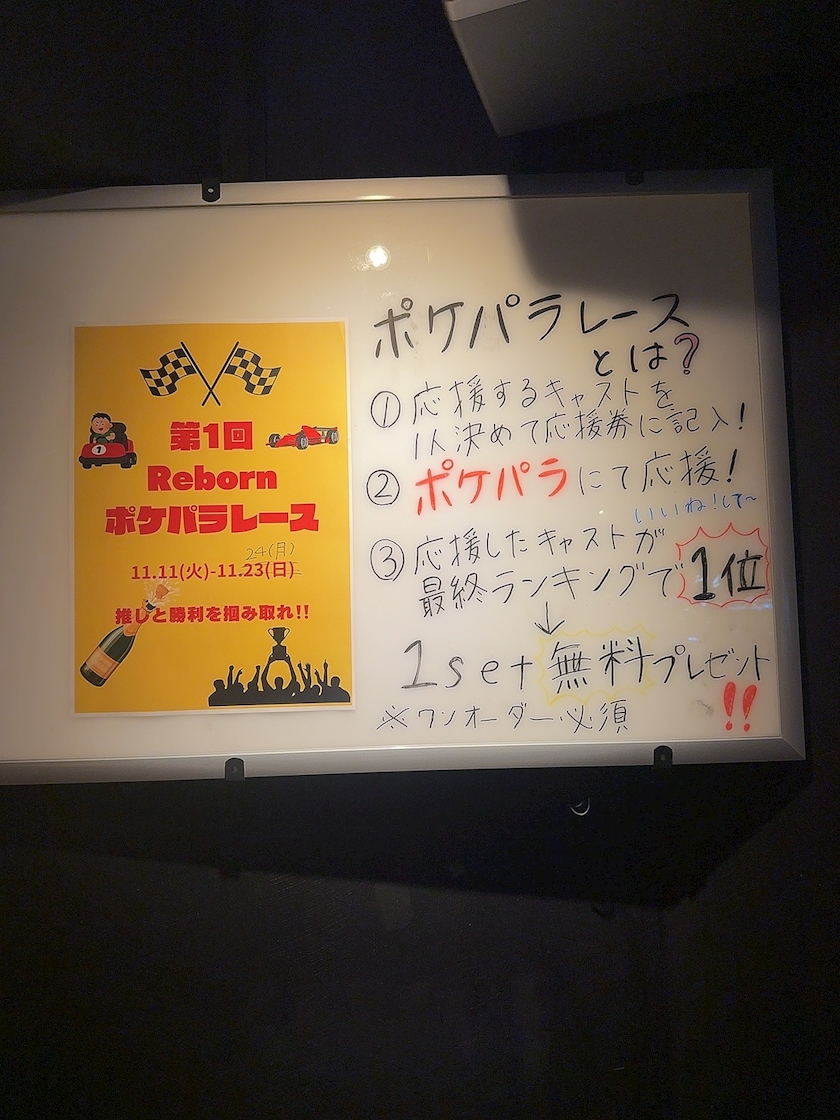 第1回
Reborn
ポケパラレース
24(月)
11.11(火)-11.23(日)
推しと勝利を掴み取れ!!
1
ポケパラレース
とは?
① 応援するキャストを
1人決めて応援券に記入!
② ポケパラにて応援!
いいね!して~
③ 応援したキャストが
最終ランキングで1位
↓
1set無料プレゼント!!
※ワンオーダー必須